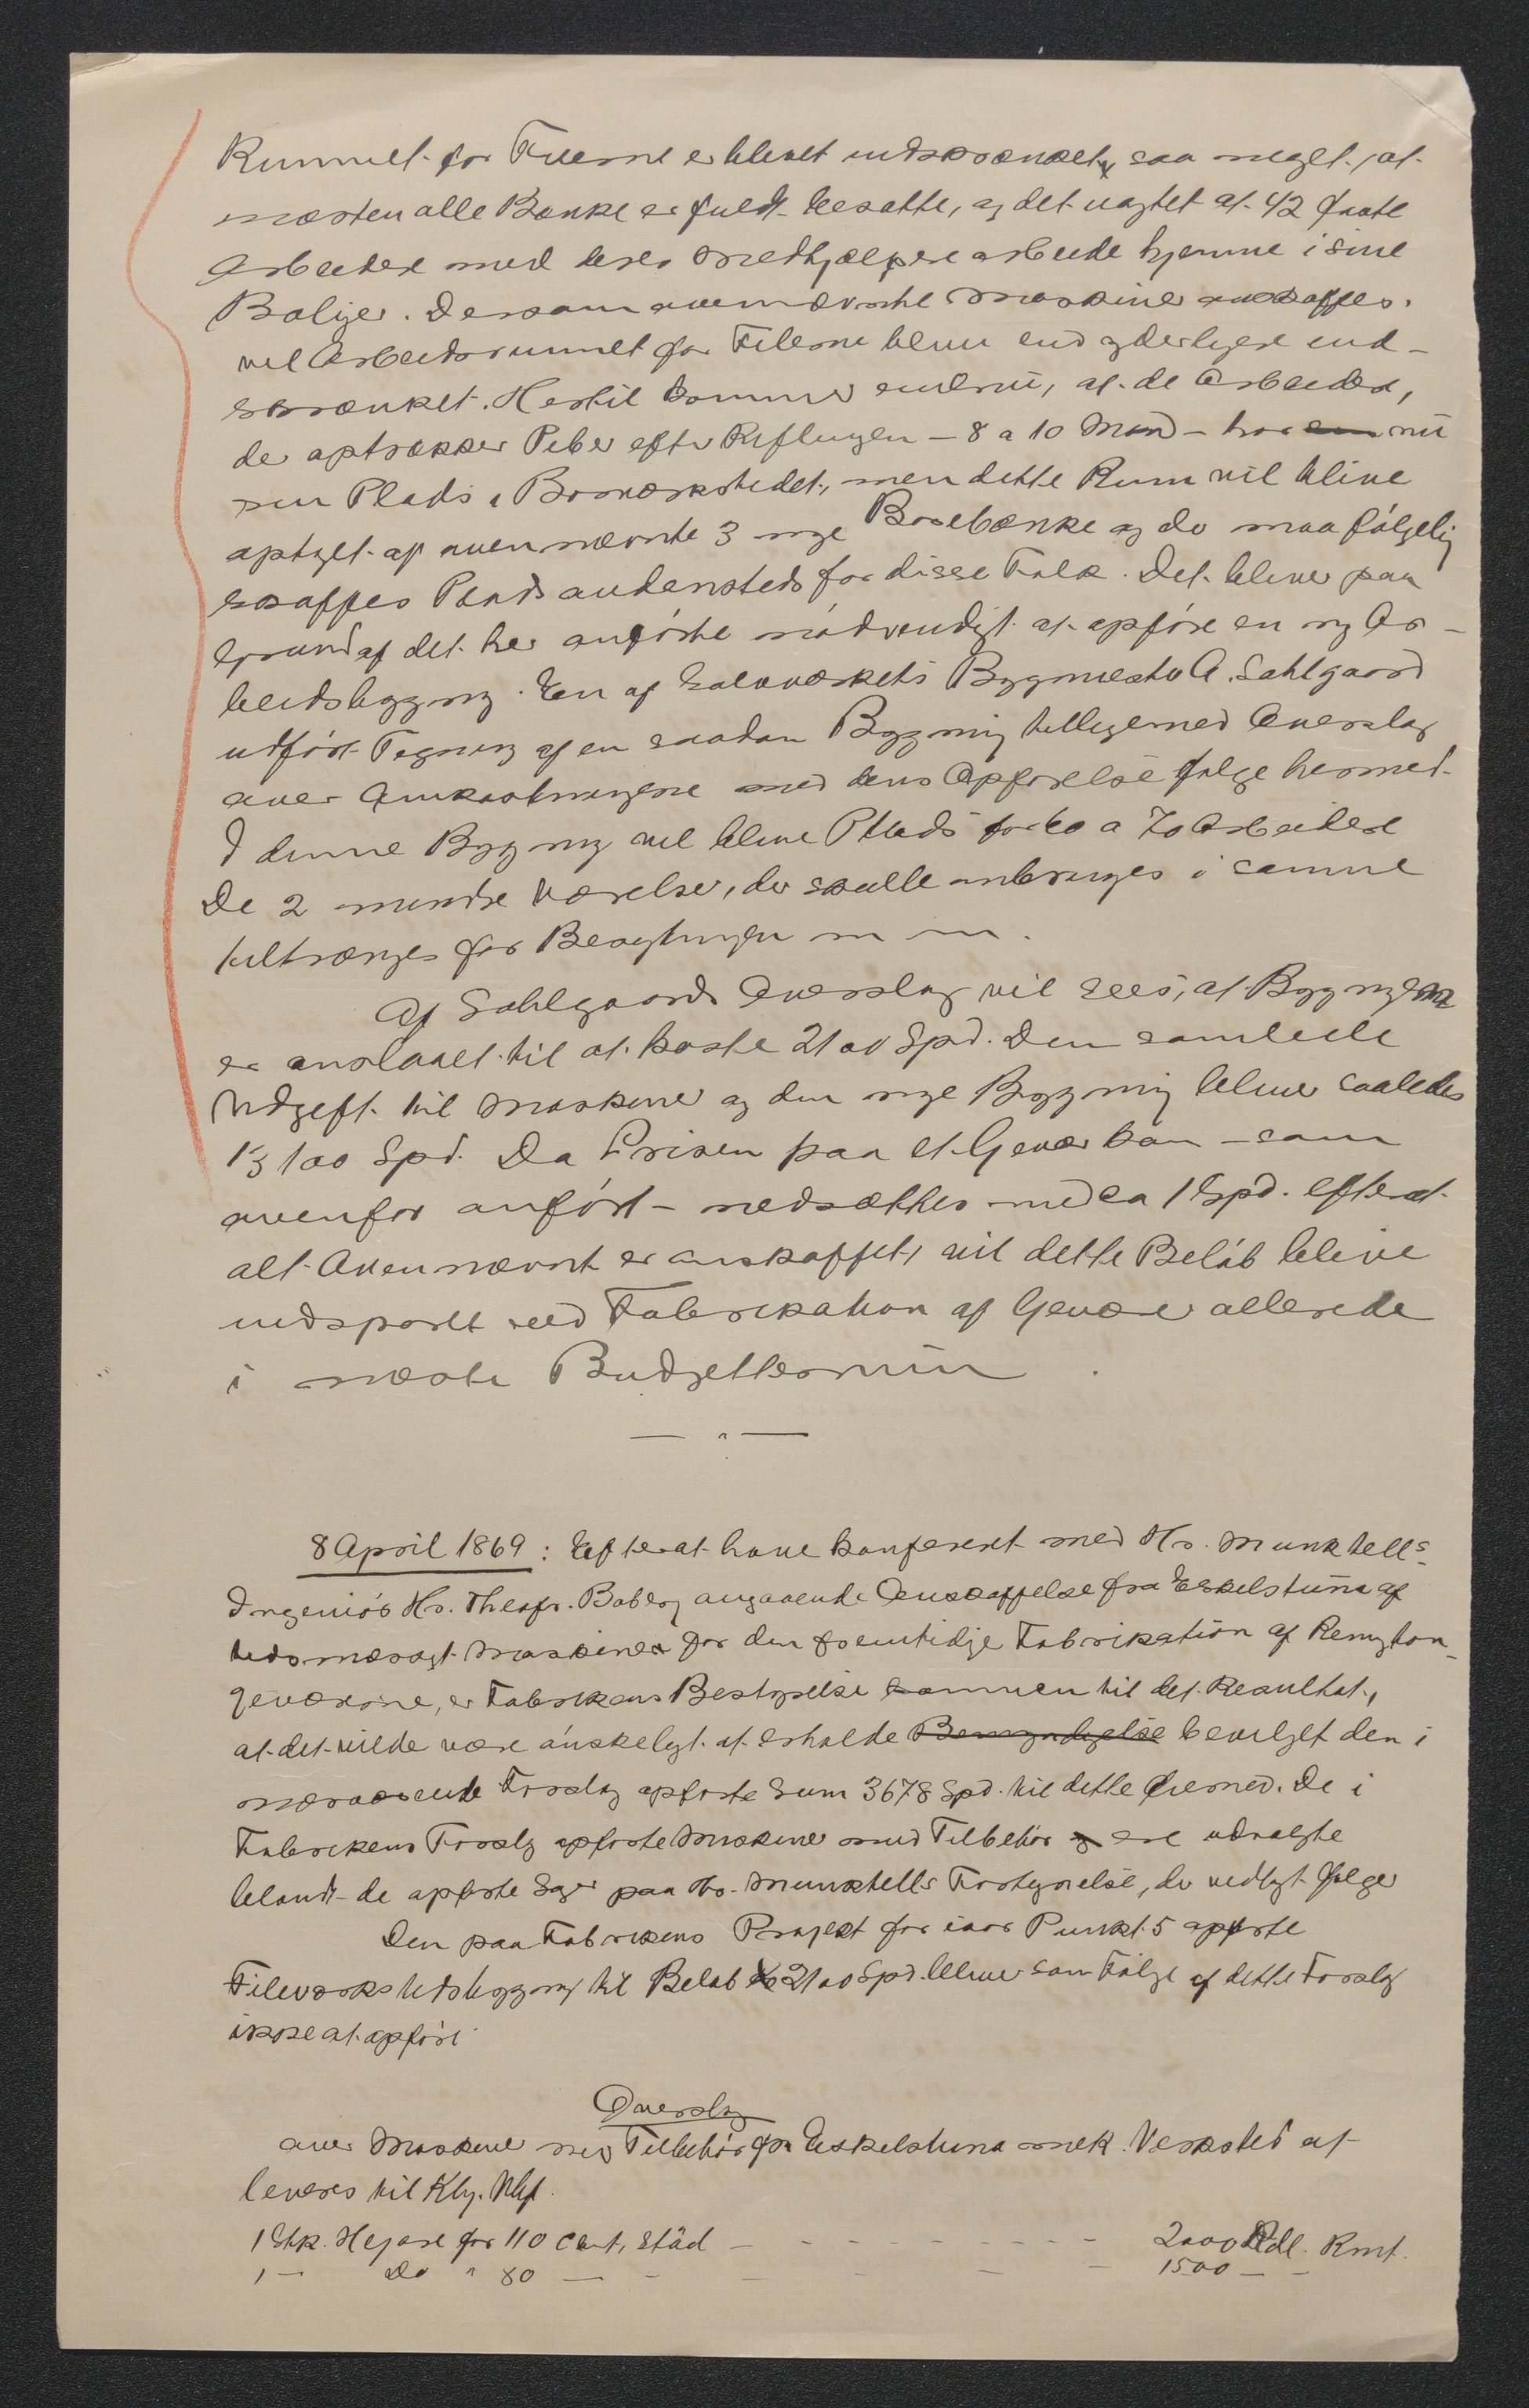 Rummet for Filerne er blevet indskrænket, saa meget, at
næsten alle Bænke er fuldt besatte, og det uagtet at 42 faste
Arbeidere med deres Medhjælpere arbeide hjemme i sine
Boliger. Dersom ovennævnte Maskiner anskaffes,
vil Arbeidsrummet for Filerne blive end yderligere ind-
skrænket. Hertil kommer endnu, at de Arbeidere,
der optrækker Piber efter Riflingen - 8 a 10 Mand - har nu
sin Plads i Borværkstedet, men dette Rum vil blive
optaget af ovennævnte 3 nye Borebænke og der maa følgelig
skaffes Plads andensteds for disse Folk. Det bliver paa
Grund af det her anførte nødvendigt at opføre en ny Ar-
beidsbygning. En af Sølvværkets Bygmester A. Sahlgaard
udført Tegning af en saadan Bygning tilligemed Overslag
over Omkostningerne med dens Opførelse følge hermed.
I denne Bygning vil blive Plads for 60 a 70 Arbeidere
De 2 mindre Værelser, der skulle anbringes i samme
tiltrænges for Beregtningen m m.
Af Sahlgaards Overslag vil sees, at Bygningen
er anslaaet til at koste 2100 Spd. Den samlede
Udgift til Maskiner og den nye Bygning bliver saaledes
13100 Spd. Da Prisen paa et Gevær kan - som
ovenfor anført - nedsættes med ca 1 Spd. efterat
alt Ovennævnt er anskaffet, vil dette Beløb blive
indsparet ved Fabrikation af Geværer allerede
i næste Budgettermin.
— " —
8 April 1869: Efter at have konfereret med Hr. Munktells
Ingeniør Hr. Theofr. Boberg angaaende Anskaffelse fra Eskelstuna af
tidsmæssigt Maskineri for den fremtidige Fabrikation af Remington-
geværerne, er Fabrikens Bestyrelse kommen til det Resultat,
at det vilde være ønskeligt at erholde Bemyndigelse bevilget den i
nærværende Forslag opførte Sum 3678 Spd. til dette Øiemed. De i
Fabrikens Forslag opførte Maskiner med Tilbehør ere udvalgte
blandt de opførte Sager paa Hr. Munktells Fortegnelse, der vedlagt følger
Den paa Fabrikens Projekt for iaar Punkt 5 opførte
Fileværkstedsbygning til Beløb 2100 Spd. bliver som Følge af dette Forslag
ikke at opføre
Overslag
over Maskiner med Tilbehør fra Eskelstuna mek. Verksted at
leveres til Kbg. Vbf.
1 Stk. Hejare for 110 cent. Städ - - - - - - - - 2000 Rdl. Rmt.
1 — Do " 80 — - - - - - 1500 — -